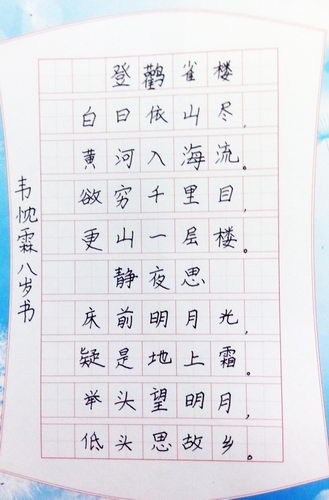 登鹳雀楼
白日依山尽,
黄河入海流。
欲穷千里目,
更山一层楼。
静夜思
床前明月光,
疑是地上霜。
举头望明月,
低头思故乡。
韦忱霖八岁书